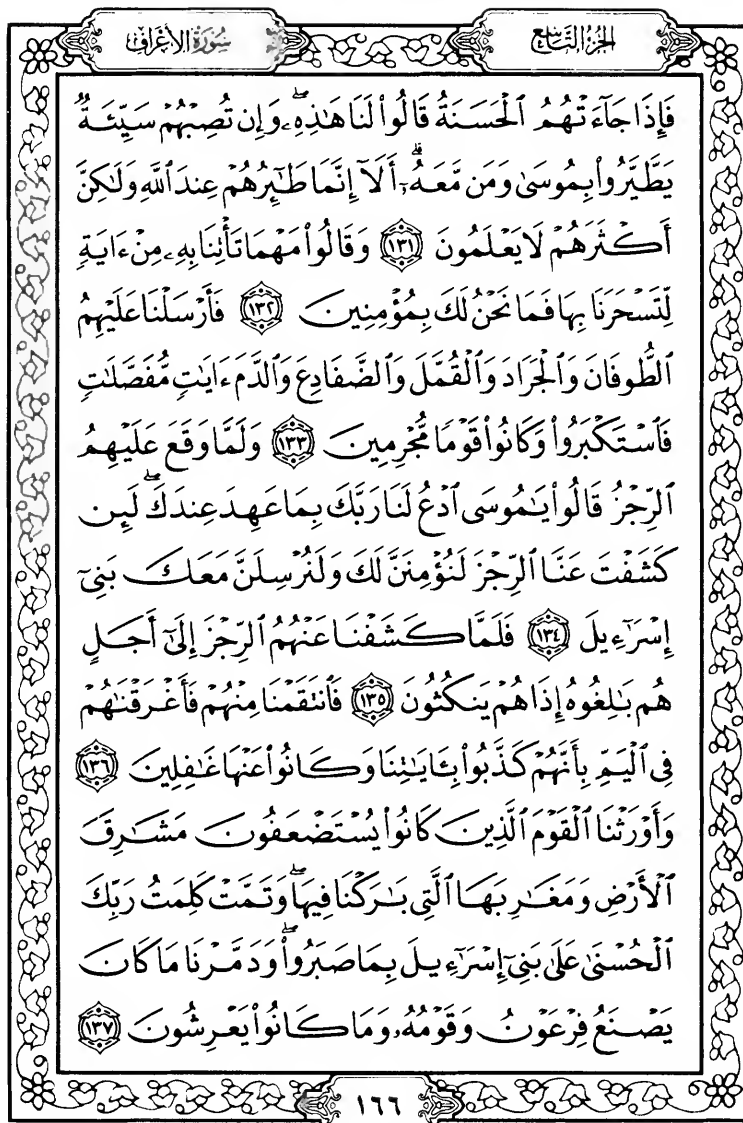 الجزء التاسع
سورة الأعراف
فَإِذَا جَآءَتْهُمُ ٱلْحَسَنَةُ قَالُوا۟ لَنَا هَٰذِهِۦۖ وَإِن تُصِبْهُمْ سَيِّئَةٌۭ
يَطَّيَّرُوا۟ بِمُوسَىٰ وَمَن مَّعَهُۥٓۗ أَلَآ إِنَّمَا طَٰٓئِرُهُمْ عِندَ ٱللَّهِ وَلَٰكِنَّ
أَكْثَرَهُمْ لَا يَعْلَمُونَ ١٣١ وَقَالُوا۟ مَهْمَا تَأْتِنَا بِهِۦ مِنْ ءَايَةٍۢ
لِّتَسْحَرَنَا بِهَا فَمَا نَحْنُ لَكَ بِمُؤْمِنِينَ ١٣٢ فَأَرْسَلْنَا عَلَيْهِمُ
ٱلطُّوفَانَ وَٱلْجَرَادَ وَٱلْقُمَّلَ وَٱلضَّفَادِعَ وَٱلدَّمَ ءَايَٰتٍۢ مُّفَصَّلَٰتٍۢ
فَٱسْتَكْبَرُوا۟ وَكَانُوا۟ قَوْمًۭا مُّجْرِمِينَ ١٣٣ وَلَمَّا وَقَعَ عَلَيْهِمُ
ٱلرِّجْزُ قَالُوا۟ يَٰمُوسَى ٱدْعُ لَنَا رَبَّكَ بِمَا عَهِدَ عِندَكَۖ لَئِن
كَشَفْتَ عَنَّا ٱلرِّجْزَ لَنُؤْمِنَنَّ لَكَ وَلَنُرْسِلَنَّ مَعَكَ بَنِىٓ
إِسْرَٰٓءِيلَ ١٣٤ فَلَمَّا كَشَفْنَا عَنْهُمُ ٱلرِّجْزَ إِلَىٰٓ أَجَلٍ
هُم بَٰلِغُوهُ إِذَا هُمْ يَنكُثُونَ ١٣٥ فَٱنتَقَمْنَا مِنْهُمْ فَأَغْرَقْنَٰهُمْ
فِى ٱلْيَمِّ بِأَنَّهُمْ كَذَّبُوا۟ بِـَٔايَٰتِنَا وَكَانُوا۟ عَنْهَا غَٰفِلِينَ ١٣٦
وَأَوْرَثْنَا ٱلْقَوْمَ ٱلَّذِينَ كَانُوا۟ يُسْتَضْعَفُونَ مَشَٰرِقَ
ٱلْأَرْضِ وَمَغَٰرِبَهَا ٱلَّتِى بَٰرَكْنَا فِيهَاۖ وَتَمَّتْ كَلِمَتُ رَبِّكَ
ٱلْحُسْنَىٰ عَلَىٰ بَنِىٓ إِسْرَٰٓءِيلَ بِمَا صَبَرُوا۟ۖ وَدَمَّرْنَا مَا كَانَ
يَصْنَعُ فِرْعَوْنُ وَقَوْمُهُۥ وَمَا كَانُوا۟ يَعْرِشُونَ ١٣٧
١٦٦